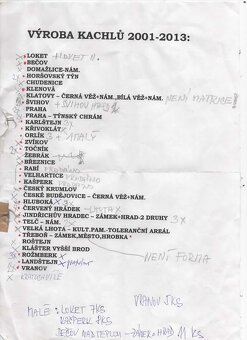 VÝROBA KACHLŮ 2001-2013:
LOKET + LOKET II.
BEČOV
DOMAŽLICE-NÁM.
HORŠOVSKÝ TÝN
CHUDENICE
KLENOVÁ
KLATOVY - ČERNÁ VĚŽ+NÁM.,BÍLÁ VĚŽ+NÁM. NENÍ MATRICE
ŠVIHOV + ŠVIHOV HRAD
PRAHA
PRAHA - TÝNSKÝ CHRÁM
KARLŠTEJN
KŘIVOKLÁT
ORLÍK 3
ZVÍKOV
TOČNÍK
ŽEBRÁK
BŘEZNICE
RABÍ
VELHARTICE
KAŠPERK
ČESKÝ KRUMLOV
ČESKÉ BUDĚJOVICE - ČERNÁ VĚŽ+NÁM.
HLUBOKÁ
ČERVENÝ HRÁDEK
JINDŘICHŮV HRADEC - ZÁMEK+HRAD-2 DRUHY 3x
TELČ - NÁM.
VELKÁ LHOTA - KULT.PAM.-TOLERANČNÍ AREÁL
TŘEBOŇ - ZÁMEK,MĚSTO,HROBKA
ROŠTEJN
KLÁŠTER VYŠŠÍ BROD
ROŽMBERK x NENÍ FORMA
LANDŠTEJN
VRANOV
VRANOV 5KS
MALÉ: LOKET 7KS
KAŠPERK
BEČOV NAD TEPLOU - ZÁMEK + HRAD 11 KS